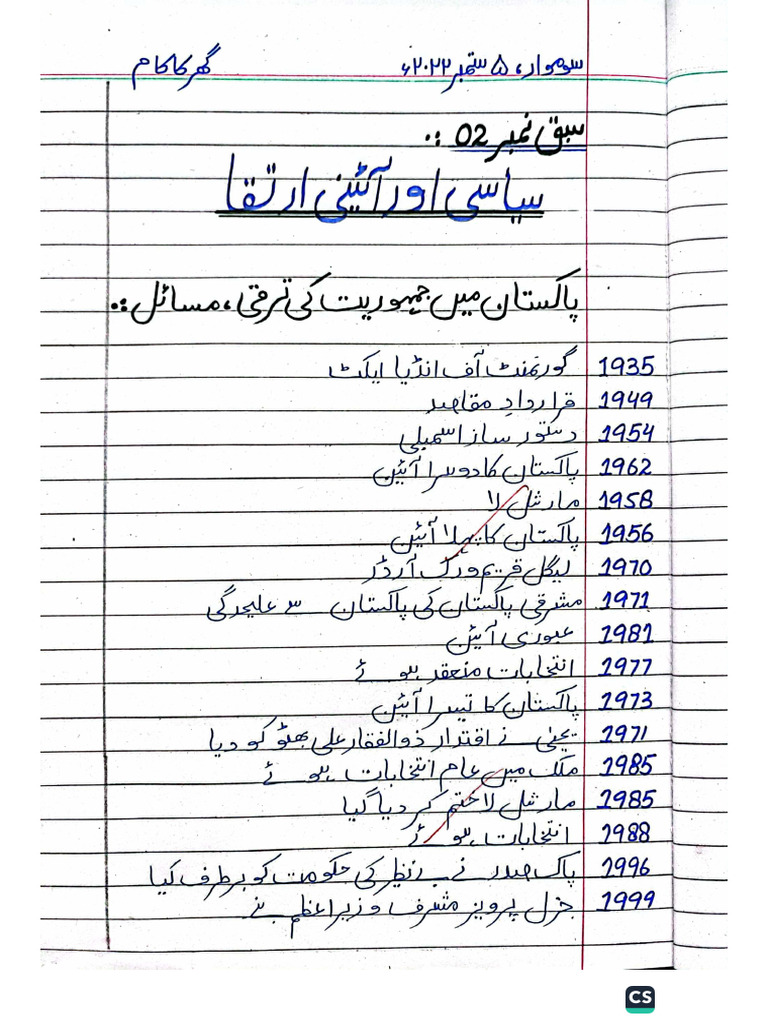 سوموار، ۵ ستمبر ۲۰۲۲ء گھر کا کام
سبق نمبر 02 :.
سیاسی اور آئینی ارتقا
پاکستان میں جمہوریت کی ترقی، مسائل :.
1935 گورنمنٹ آف انڈیا ایکٹ
1949 قراردادِ مقاصد
1954 دستور ساز اسمبلی
1962 پاکستان کا دوسرا آئین
1958 مارشل لا
1956 پاکستان کا پہلا آئین
1970 لیگل فریم ورک آرڈر
1971 مشرقی پاکستان کی پاکستان سے علیحدگی
1981 عبوری آئین
1977 انتخابات منعقد ہوئے
1973 پاکستان کا تیسرا آئین
1971 یحیٰی نے اقتدار ذوالفقار علی بھٹو کو دیا
1985 ملک میں عام انتخابات ہوئے
1985 مارشل لا ختم کر دیا گیا
1988 انتخابات ہوئے
1996 پاک صدر نے بے نظیر کی حکومت کو برطرف کیا
1999 جنرل پرویز مشرف وزیراعظم بنے
CS